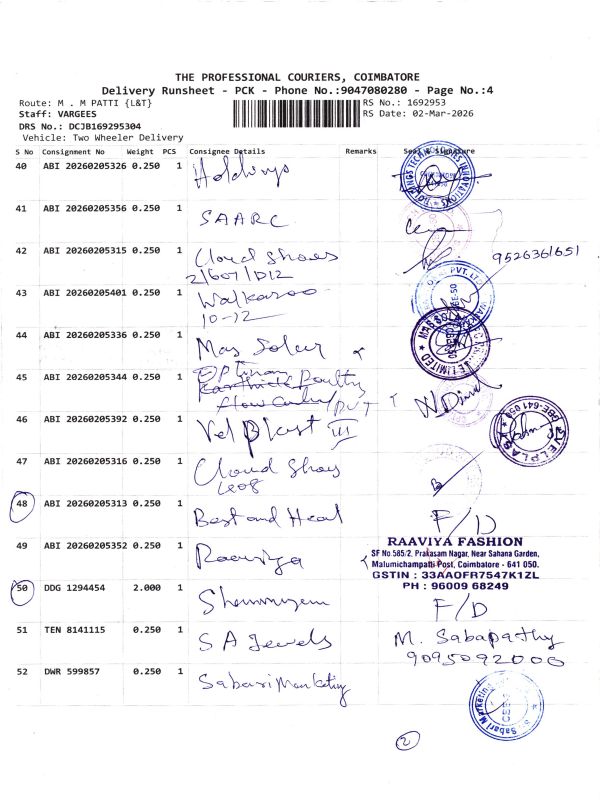 THE PROFESSIONAL COURIERS, COIMBATORE
Delivery Runsheet - PCK - Phone No.:9047080280 - Page No.:4
Route: M . M PATTI {L&T}
RS No.: 1692953
Staff: VARGEES
RS Date: 02-Mar-2026
DRS No.: DCJB169295304
Vehicle: Two Wheeler Delivery
S No Consignment No Weight PCS Consignee Details Remarks Seal & Signature
40 ABI 20260205326 0.250 1 Holdings
41 ABI 20260205356 0.250 1 SAARC
42 ABI 20260205315 0.250 1 Cloud Shoes
9526361651
2/607/D12
43 ABI 20260205401 0.250 1 Walkaroo
10-12
44 ABI 20260205336 0.250 1 Mas Soler
45 ABI 20260205344 0.250 1 Poultry
PVT
46 ABI 20260205392 0.250 1 Vel Plast III
47 ABI 20260205316 0.250 1 Cloud Shoes
48 ABI 20260205313 0.250 1 Best and Heat F/D
49 ABI 20260205352 0.250 1 Raaviya
RAAVIYA FASHION
SF No 585/2, Prakasam Nagar, Near Sahana Garden,
Malumichampatti Post, Coimbatore - 641 050.
GSTIN : 33AAOFR7547K1ZL
PH : 96009 68249
50 DDG 1294454 2.000 1 F/D
51 TEN 8141115 0.250 1 S A Jewels M. Sabapathy
9095092000
52 DWR 599857 0.250 1 Sabari Marketing
2